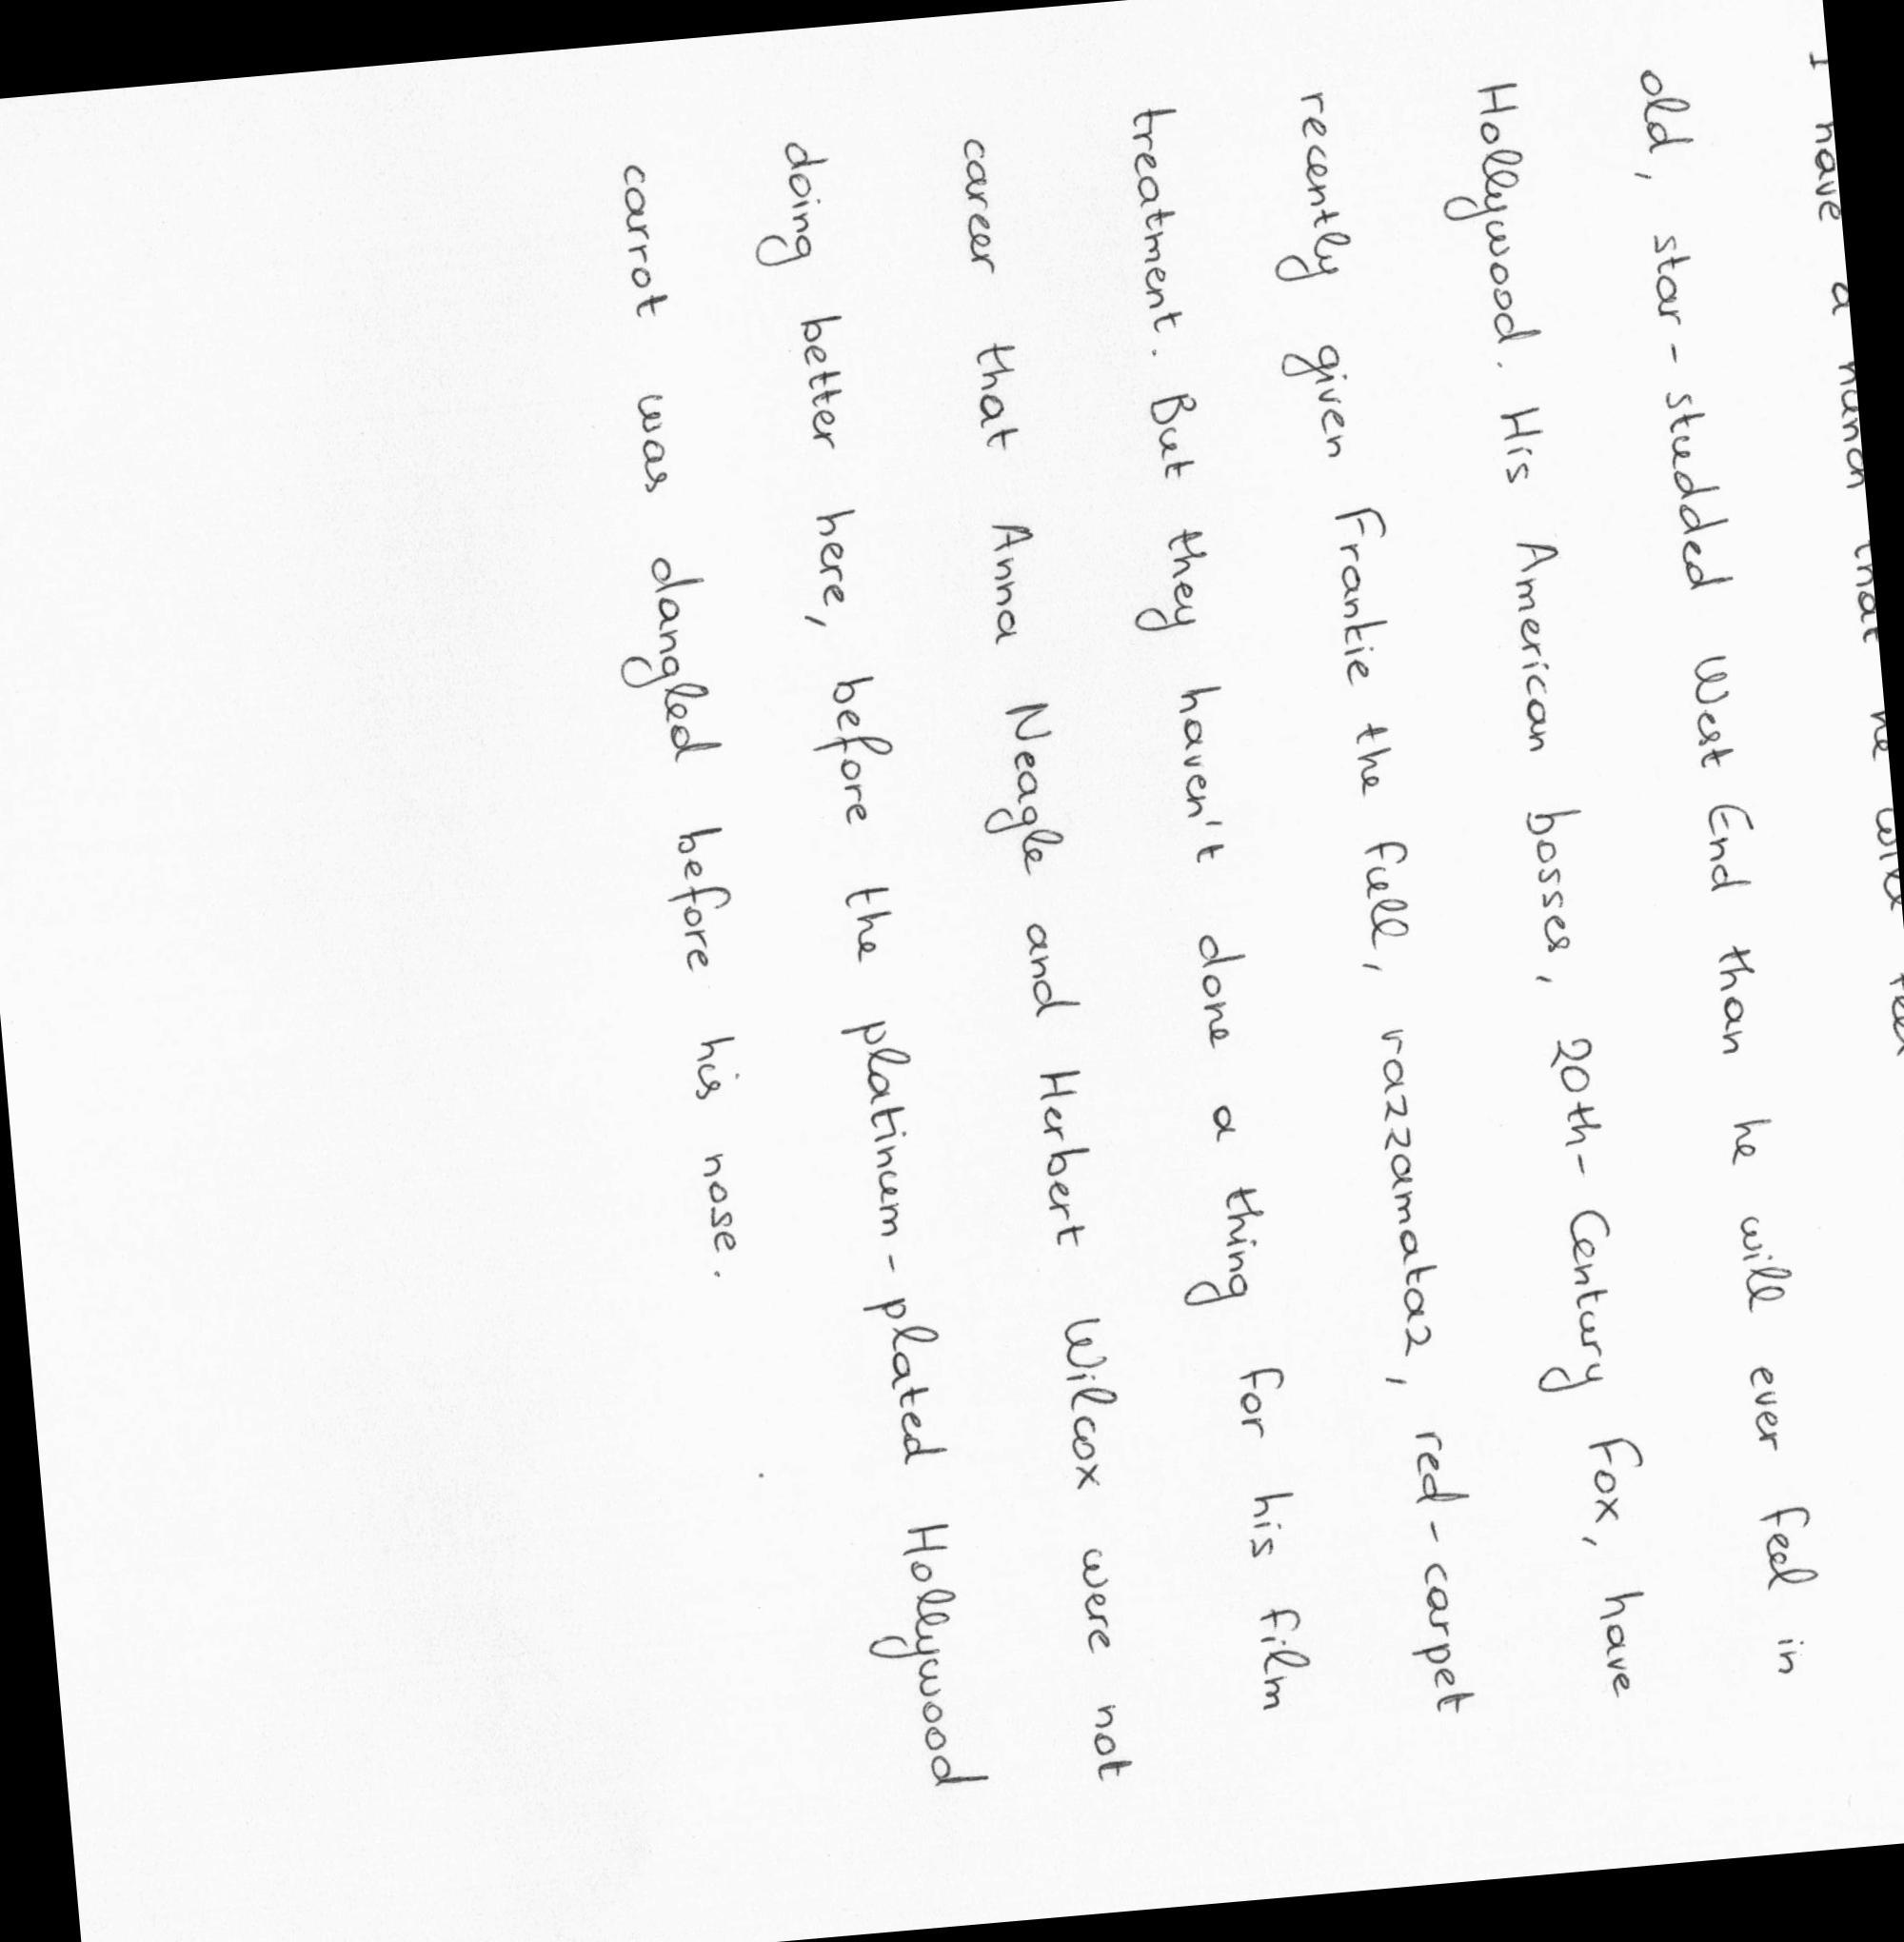 I have a hunch that he will feel
old, star-studded West End than he will ever feel in
Hollywood. His American bosses, 20th-Century Fox, have
recently given Frankie the full, razzamataz, red-carpet
treatment. But they haven't done a thing for his film
career that Anna Neagle and Herbert Wilcox were not
doing better here, before the platinum-plated Hollywood
carrot was dangled before his nose.